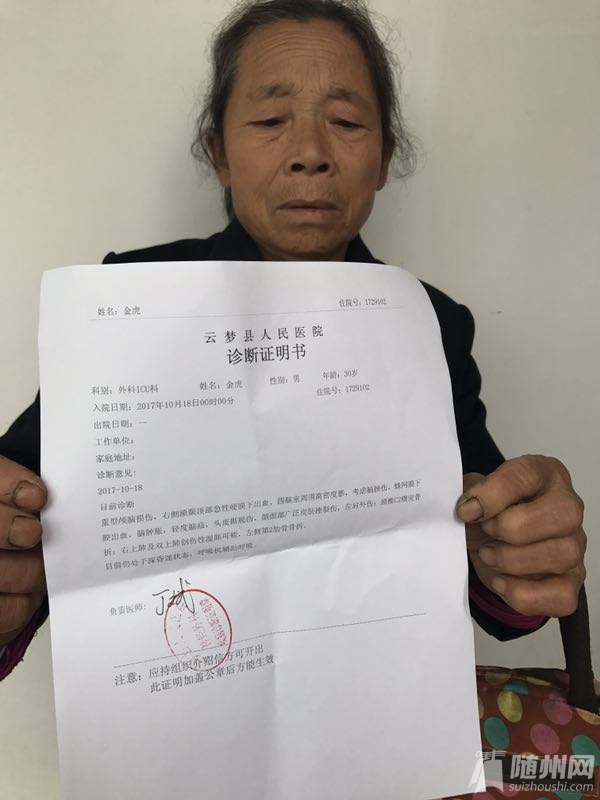 姓名：金虎 住院号：1729102
云梦县人民医院
诊断证明书
科别：外科ICU科 姓名：金虎 性别：男 年龄：30岁
入院日期：2017年10月18日00时00分 住院号：1729102
出院日期：—
工作单位：
家庭地址：
诊断意见：
2017-10-18
目前诊断
重型颅脑损伤，右侧额颞顶部急性硬膜下出血，四脑室周围高密度影，考虑脑挫伤，蛛网膜下
腔出血，脑肿胀，轻度脑疝，头皮撕脱伤，颜面部广泛皮肤挫裂伤，左肩外伤；颈椎C2横突骨
折；右上肺及双上肺创伤性湿肺可能，左侧第2肋骨骨折。
目前仍处于深昏迷状态，呼吸机辅助呼吸。
负责医师：
注意：应持组织介绍信方可开出
此证明加盖公章后方能生效
随州网
suizhoushi.com